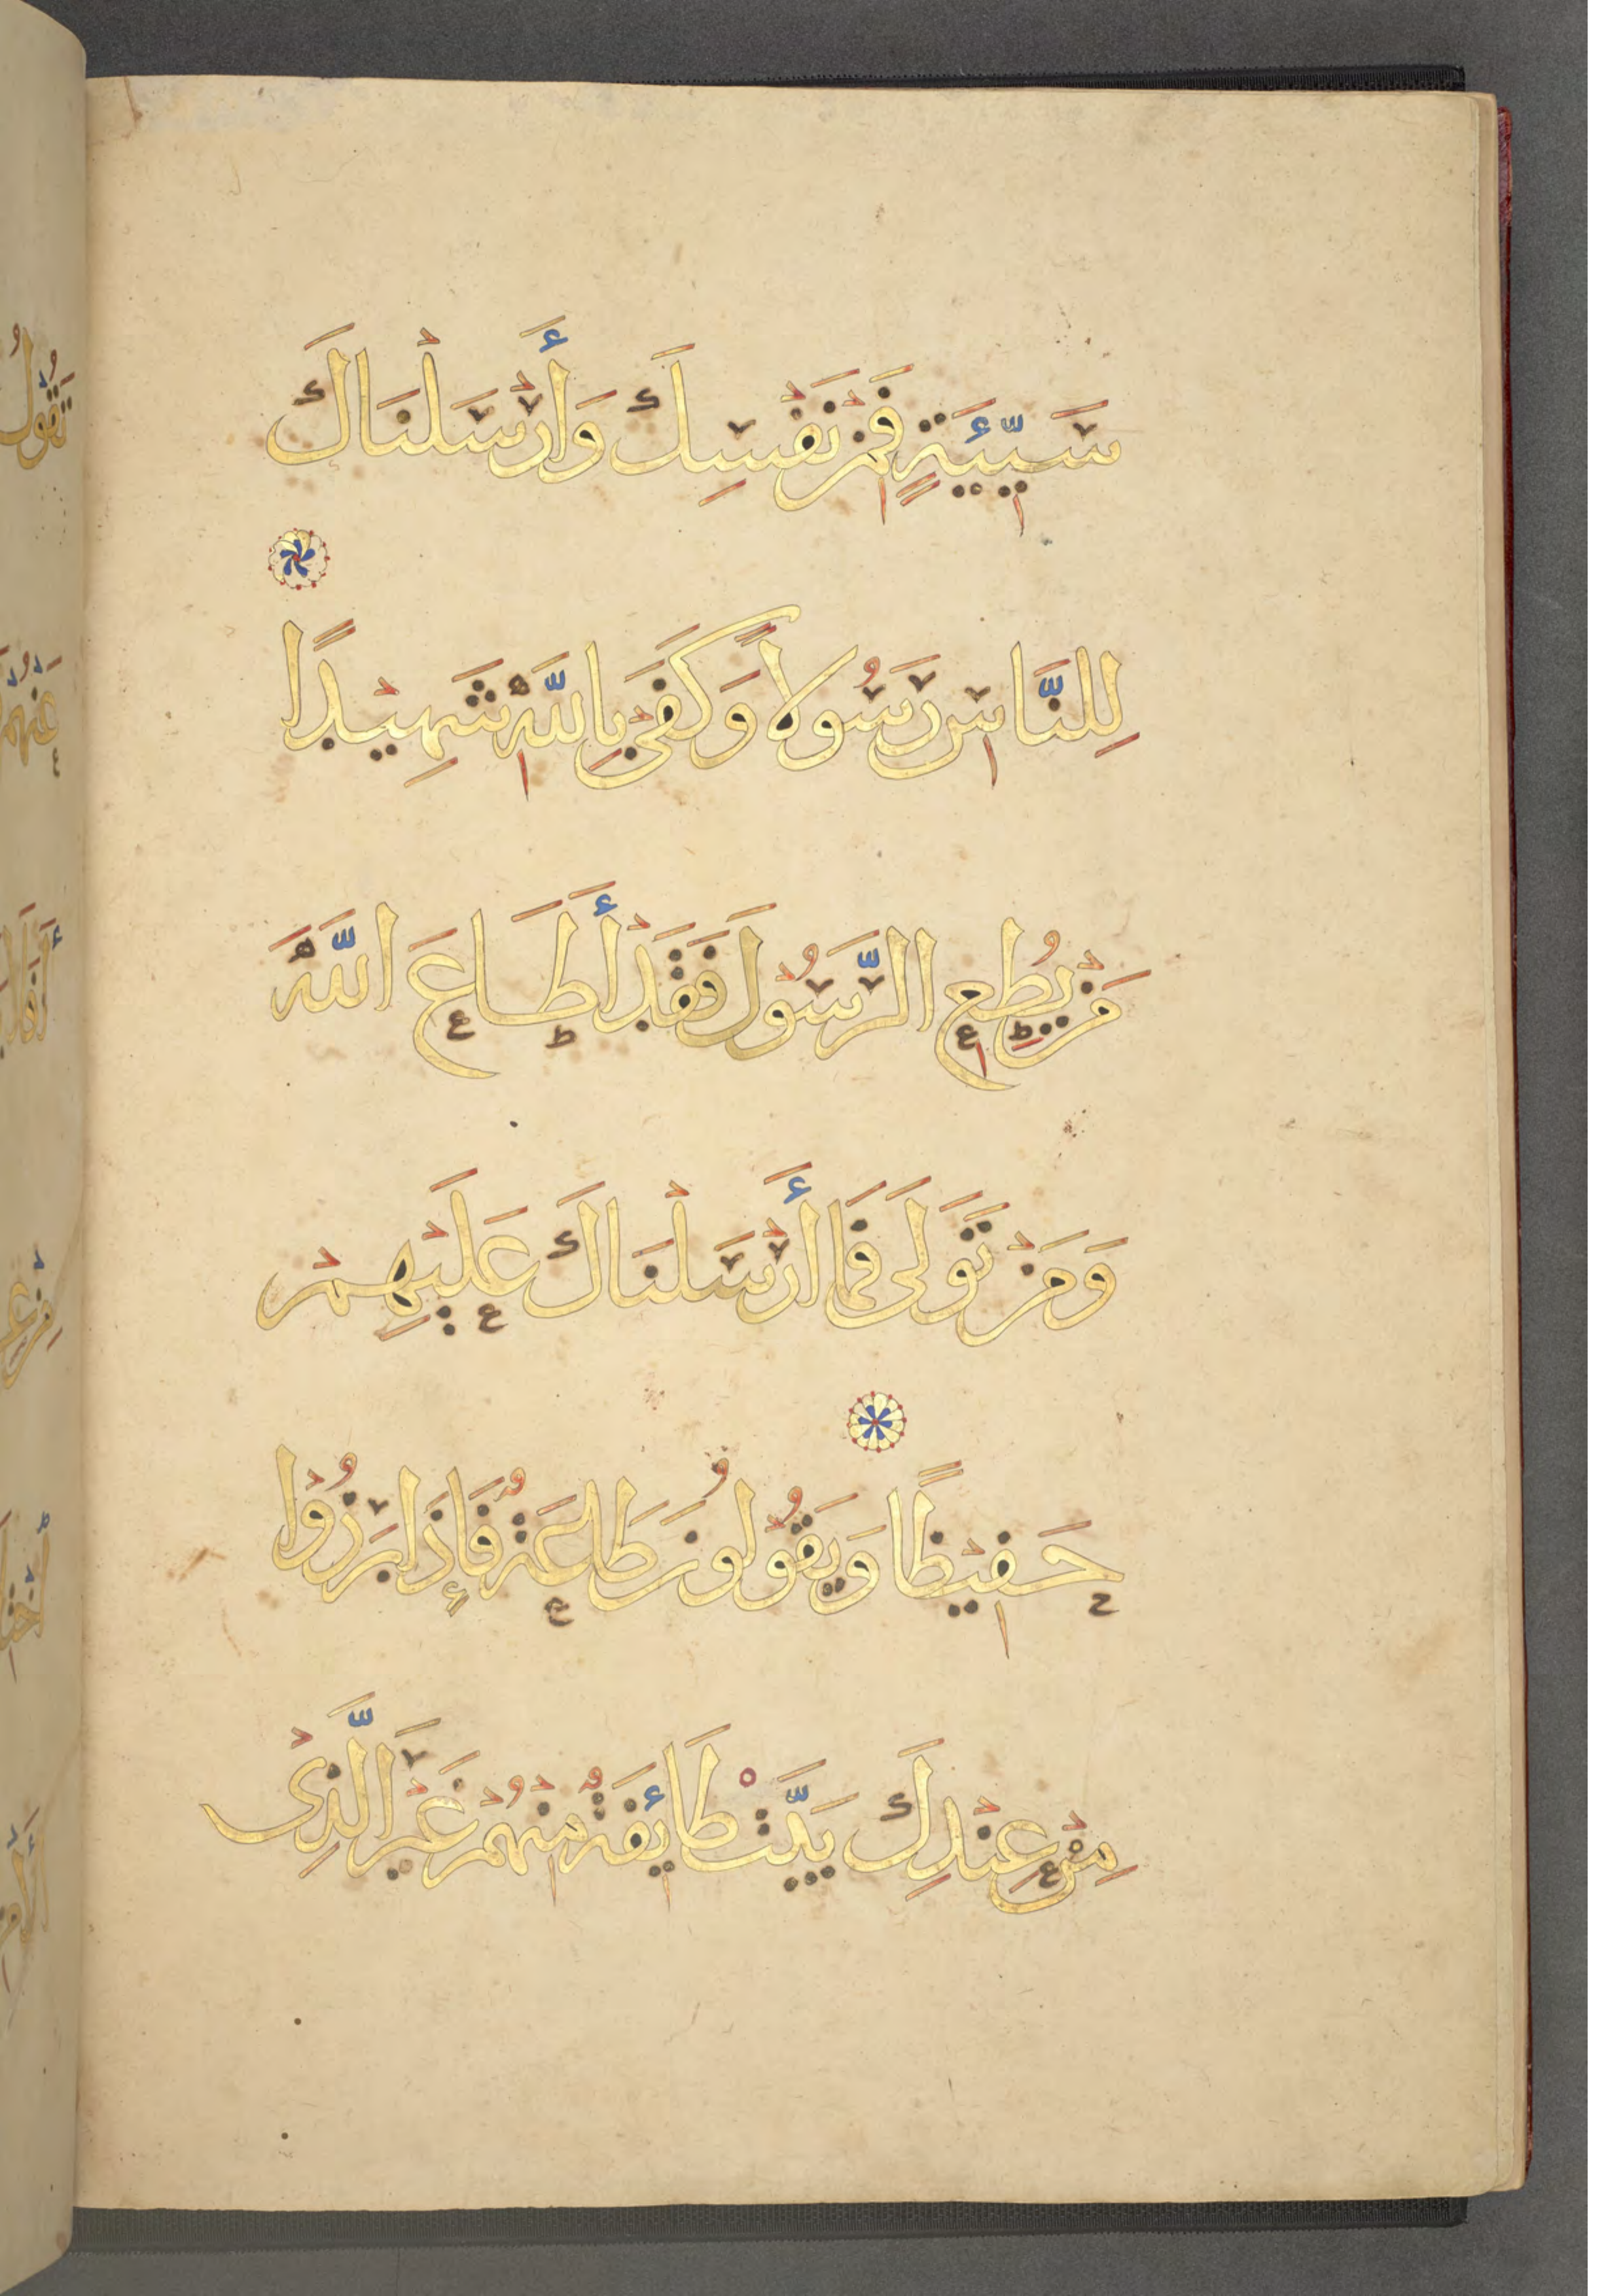 سَيِّئَةٍ فَمِنْ نَفْسِكَ وَأَرْسَلْنَاكَ
لِلنَّاسِ رَسُولًا وَكَفَىٰ بِاللَّهِ شَهِيدًا
مَنْ يُطِعِ الرَّسُولَ فَقَدْ أَطَاعَ اللَّهَ
وَمَنْ تَوَلَّىٰ فَمَا أَرْسَلْنَاكَ عَلَيْهِمْ
حَفِيظًا وَيَقُولُونَ طَاعَةٌ فَإِذَا بَرَزُوا
مِنْ عِنْدِكَ بَيَّتَ طَائِفَةٌ مِنْهُمْ غَيْرَ الَّذِي